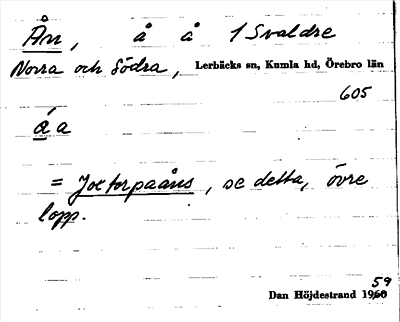 Ån, å å 1 Svaldre
Norra och Södra, Lerbäcks sn, Kumla hd, Örebro län
605
áa
= Joxtorpaåns, se detta, övre
lopp.
59
Dan Höjdestrand 1960